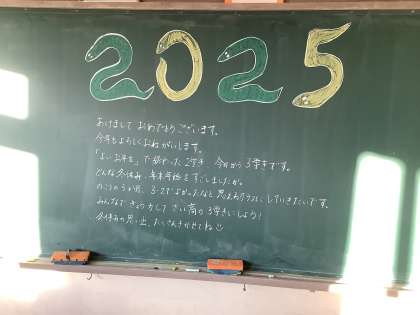 2025
あけまして おめでとうございます。
今年もよろしくおねがいします。
「よいお年を」で終わった2学き 今日から3学きです。
どんな冬休み、年末年始をすごしましたか。
のこり3か月、3-2でよかったなと思えるクラスにしていきたいです。
みんなできょう力して さい高の3学きにしよう!
冬休みの思い出、たくさんきかせてね